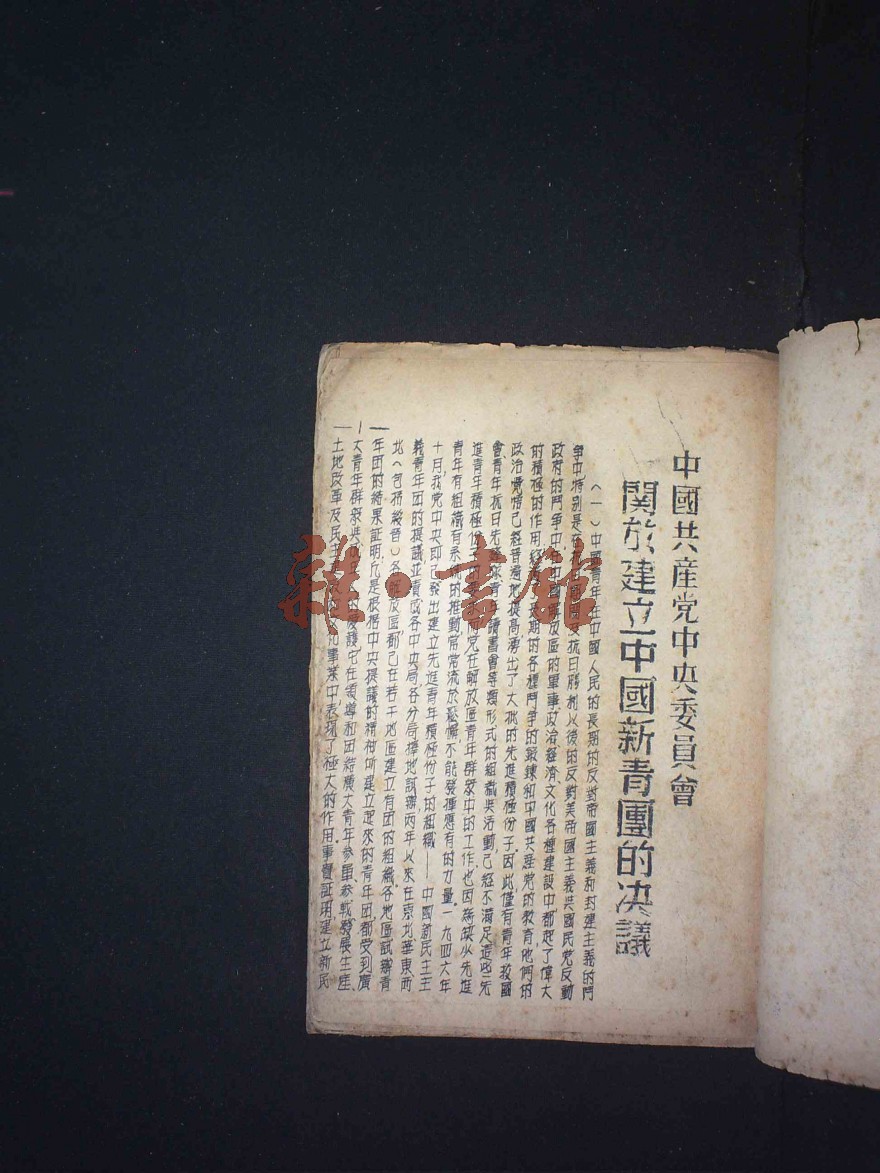 中國共産党中央委員會
関於建立中國新青團的决議
(一)中國青年在中國人民的長期的反對帝國主義和封建主義的鬥
争中特别是在抗日戰争及抗日勝利以後的反對美帝國主義與國民党反動
政府的鬥争中在中國解放區的軍事政治經濟文化各種建設中都起了偉大
的積極的作用經過了長期的各種鬥争的鍛鍊和中國共産党的教育他們的
政治覺悟已經普遍地提高湧出了大批的先進積極份子。因此僅有青年救國
會青年抗日先鋒隊青年讀書會等類形式的組織與活動已經不滿足這些先
進青年積極份子的要求而党在解放區青年群衆中的工作也因為缺少先進
青年有組織有系統的推動常常流於鬆懈不能發揮應有的力量。一九四六年
十月,我党中央即已發出建立先進青年積極份子的組織——中國新民主主
義青年团的提議並責成各中央局、各分局擇地試辦两年以来在東北華東西
北(包括綏晉)各解放區都已在若干地區建立有团的組織各地區試辦青
年团的結果証明凡是根据中央提議的精神所建立起來的青年团,都受到廣
大青年群衆與 的擁護,它在領導和团結廣大青年参軍、参戰、發展生産、
土地改革及民主 事業中,表現了極大的作用事實証明,建立新民
—1—
雜·書館